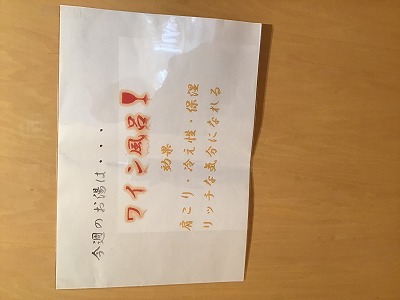 今週のお湯は・・・
ワイン風呂
効果
肩こり・冷え性・保湿
リッチな気分になれる